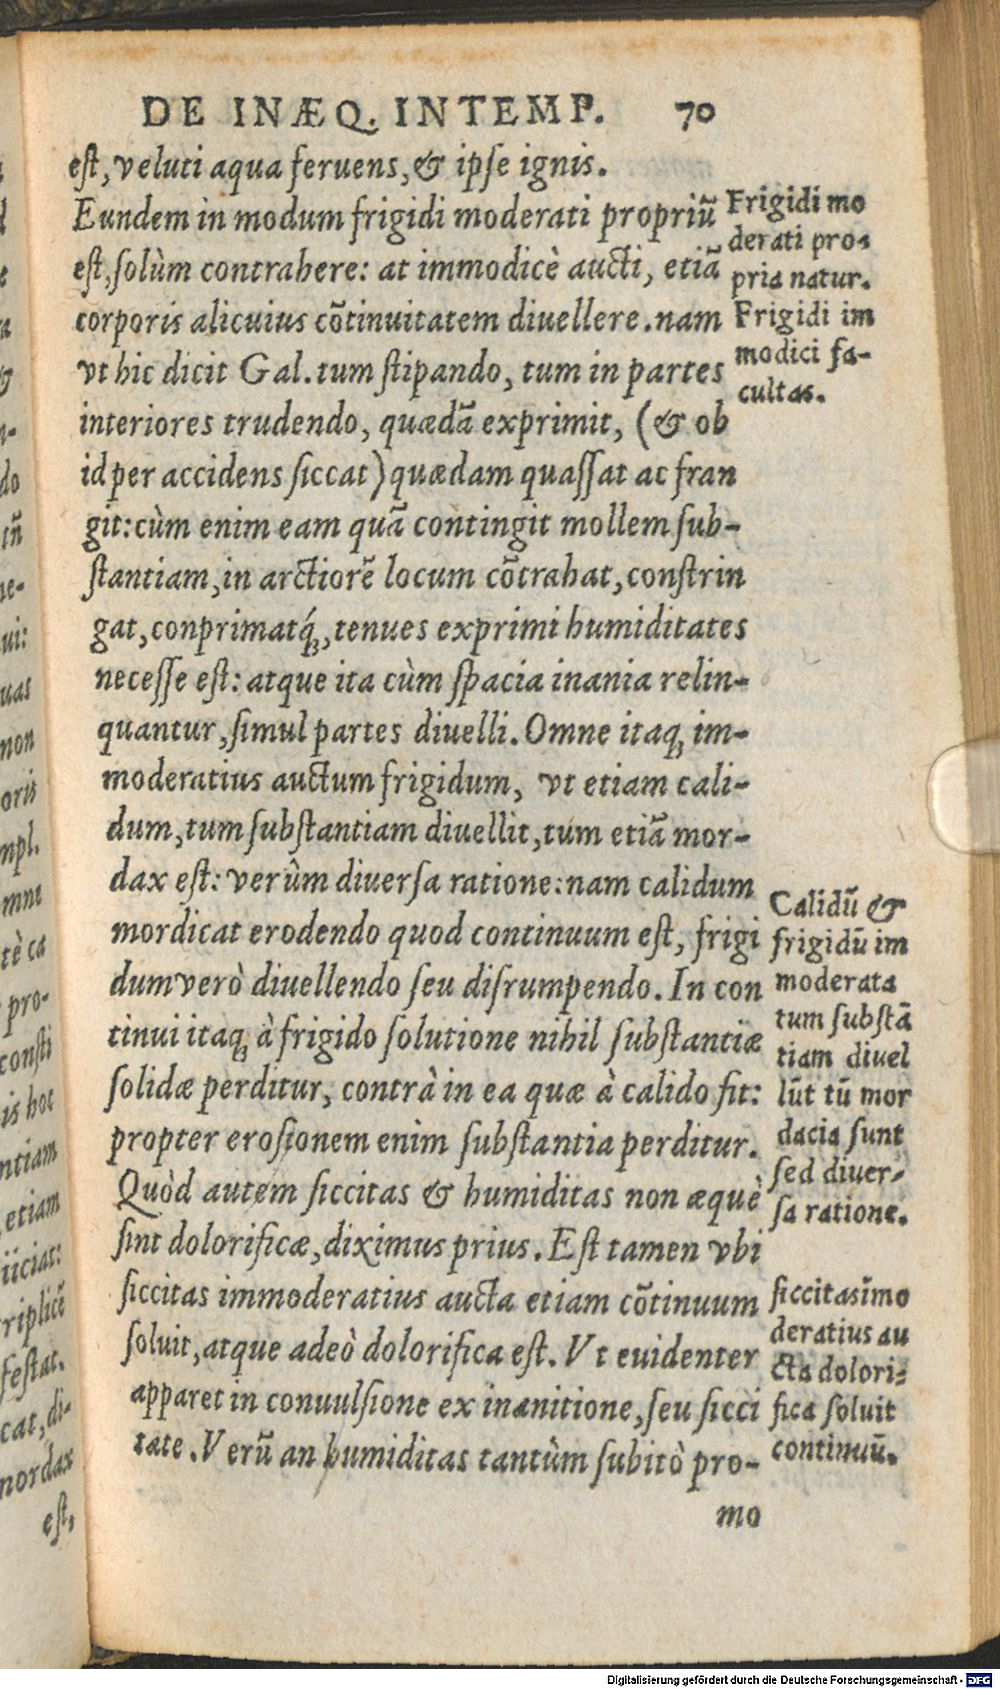 DE INÆQ. INTEMP. 70
est, veluti aqua feruens, & ipse ignis.
Eundem in modum frigidi moderati propriũ
est, solùm contrahere: at immodicè aucti, etiã
corporis alicuius cõtinuitatem diuellere. nam
vt hic dicit Gal. tum stipando, tum in partes
interiores trudendo, quædã exprimit, (& ob
id per accidens siccat) quædam quassat ac fran
git: cùm enim eam quã contingit mollem sub-
stantiam, in arctiorẽ locum cõtrahat, constrin
gat, conprimatq́;, tenues exprimi humiditates
necesse est: atque ita cùm spacia inania relin-
quantur, simul partes diuelli. Omne itaq; im-
moderatius auctum frigidum, vt etiam cali-
dum, tum substantiam diuellit, tum etiã mor-
dax est: verùm diuersa ratione: nam calidum
mordicat erodendo quod continuum est, frigi
dum verò diuellendo seu disrumpendo. In con
tinui itaq; à frigido solutione nihil substantiæ
solidæ perditur, contrà in ea quæ à calido fit:
propter erosionem enim substantia perditur.
Quòd autem siccitas & humiditas non æquè
sint dolorificæ, diximus prius. Est tamen vbi
siccitas immoderatius aucta etiam cõtinuum
soluit, atque adeò dolorifica est. Vt euidenter
apparet in conuulsione ex inanitione, seu sicci
tate. Verũ an humiditas tantùm subitò pro-
mo
Frigidi mo
derati pro-
pria natur.
Frigidi im
modici fa-
cultas.
Calidũ &
frigidũ im
moderata
tum substã
tiam diuel
lũt tũ mor
dacia sunt
sed diuer-
sa ratione.
siccitas im̃o
deratius au
cta dolori-
fica soluit
continuũ.
do
tñ
ne-
ui:
uas
non
oris
mpl.
mne
tè ca
pro-
consti
is hoc
ntiam
etiam
iiciat:
riplicẽ
festat.
cat, di-
mordax
est,
Digitalisierung gefördert durch die Deutsche Forschungsgemeinschaft - DFG